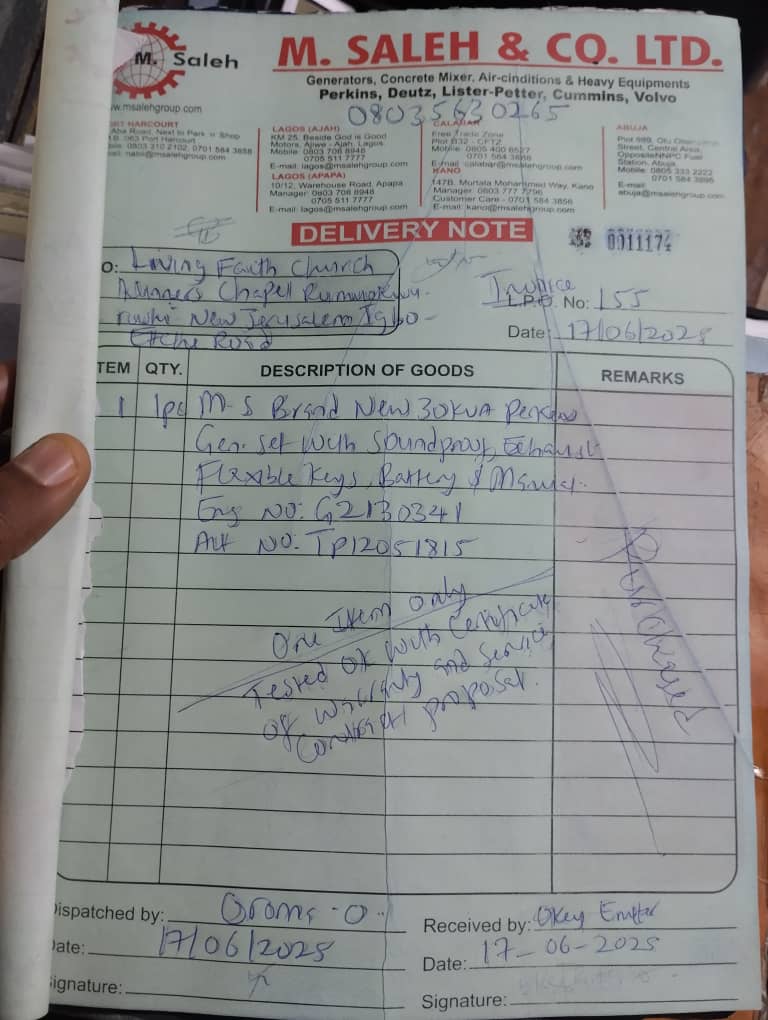 M. Saleh
M. SALEH & CO. LTD.
Generators, Concrete Mixer, Air-cinditions & Heavy Equipments
Perkins, Deutz, Lister-Petter, Cummins, Volvo
08035630265
w.msalehgroup.com
HARCOURT
Aba Road, Next to Park 'n' Shop
063 Port Harcourt
0803 210 2102, 0701 584 3858
nabil@msalehgroup.com
LAGOS (AJAH)
KM 25, Beside God is Good
Motors, Ajiwe - Ajah, Lagos.
Mobile: 0803 706 8948
0705 511 7777
E-mail: lagos@msalehgroup.com
LAGOS (APAPA)
10/12, Warehouse Road, Apapa
Manager: 0803 706 8948
0705 511 7777
E-mail: lagos@msalehgroup.com
CALABAR
Free Trade Zone
Plot B32 - CFTZ
Mobile: 0805 400 6527
0701 584 3858
E-mail: calabar@msalehgroup.com
KANO
147B, Murtala Mohammed Way, Kano
Manager: 0803 777 7796
Customer Care - 0701 584 3856
E-mail: kano@msalehgroup.com
ABUJA
Plot 599,
Street, Central Area,
Opposite NNPC Fuel
Station, Abuja
Mobile: 0805 333 2222
0701 584 3895
E-mail:
abuja@msalehgroup.com
DELIVERY NOTE
0011174
O: Living Faith Church
Winners Chapel
New Jerusalem Igbo -
Etche Road
Invoice
L.P.O. No: 155
Date: 17/06/2025
TEM QTY. DESCRIPTION OF GOODS REMARKS
1 1pc M-S Brand New 30KVA Perkins
Gen. Set with Soundproof, Exhaust
Flexible Keys, Battery & Manual.
Eng NO: G2130341
Alt NO: TP12051815
One Item only
Tested OK with Certificate
of Warranty and Service
Contract proposal.
Purchased
ispatched by: -O.
Received by: Okey
ate: 17/06/2025
Date: 17-06-2025
ignature:
Signature: